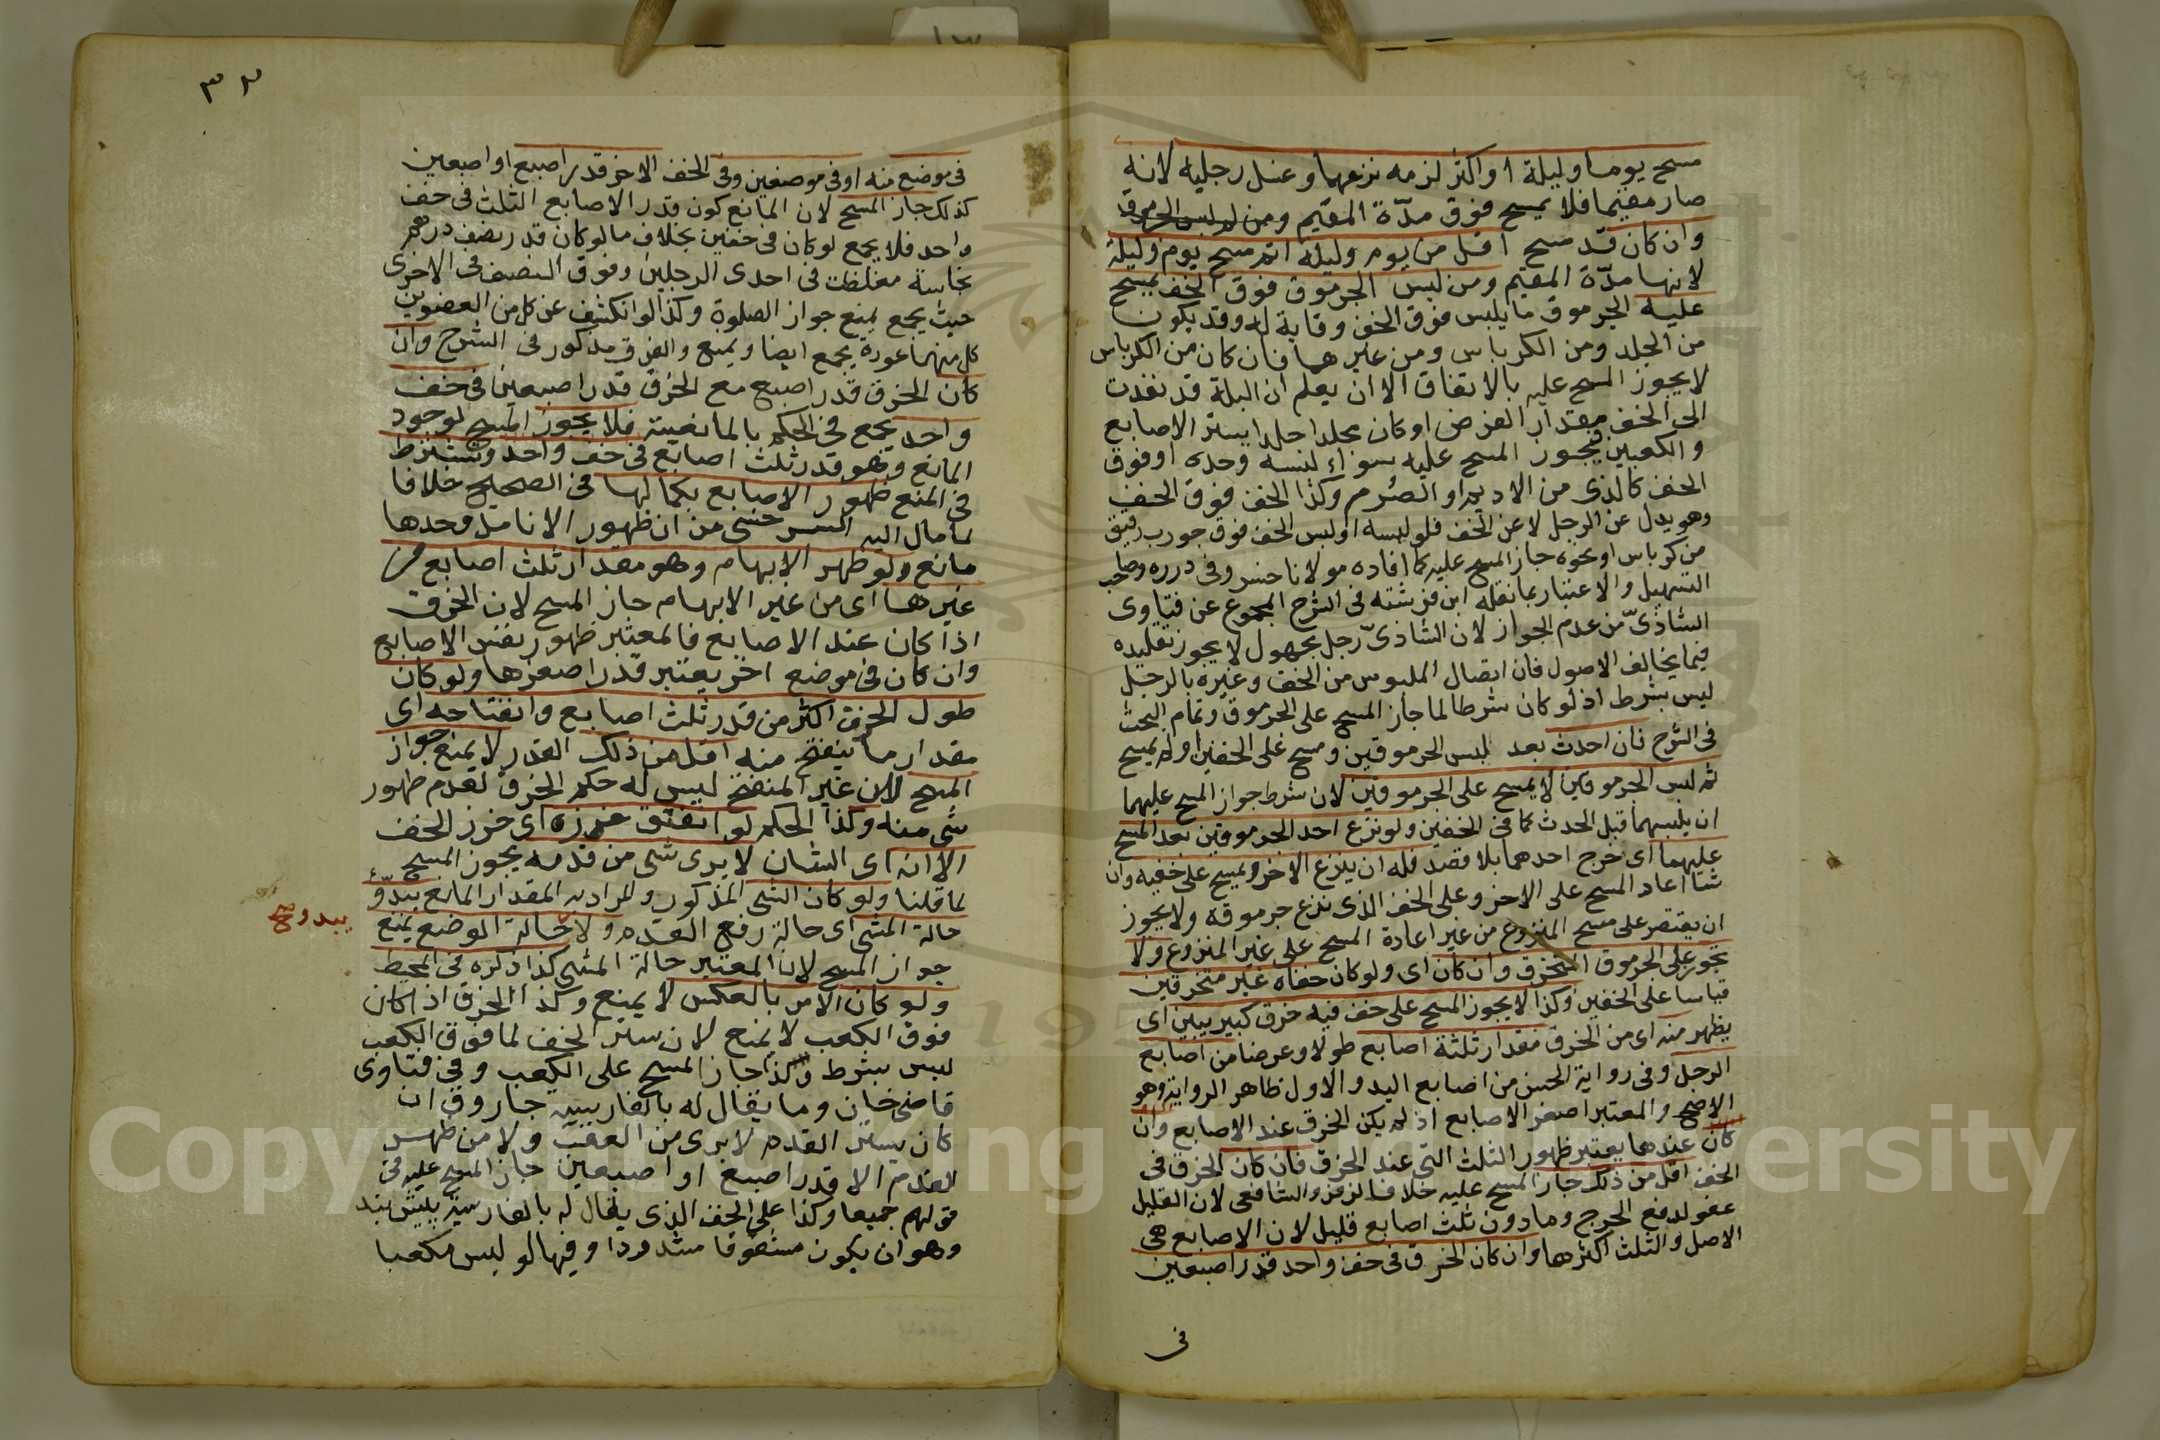 مسح يوما وليلة او اكثر لزمه نزعهما وغسل رجليه لانه
صار مقيما فلا يمسح فوق مدّة المقيم ومن لم لبس الجرموق
وان كان قد مسح اقل من يوم وليلة اتم مسح يوم وليلة
لانها مدّة المقيم ومن لبس الجرموق فوق الخف يمسح
عليه الجرموق ما يلبس فوق الخف وقاية له وقد يكون
من الجلد ومن الكرباس ومن غيرهما فان كان من الكرباس
لا يجوز المسح عليه بالاتفاق الا ان يعلم ان البلة قد نفذت
الى الخف مقدار الفرض او كان مجلدا جلدا يستر الاصابع
والكعبين فيجوز المسح عليه سواء لبسه وحده او فوق
الخف كالذى من الاديم او الصرم وكذا الخف فوق الخف
وهو بدل عن الرجل لا عن الخف فلو لبسه او لبس الخف فوق جورب رقيق
من كرباس او نحوه جاز المسح عليه كما افاده مولانا خسرو فى درره وصاحب
التسهيل والاعتبار بما نقله ابن فرشته فى الشرح المجموع عن فتاوى
الشاذىّ من عدم الجواز لان الشاذىّ رجل مجهول لا يجوز تقليده
فيما يخالف الاصول فان اتصال الملبوس من الخف وغيره بالرجل
ليس بشرط اذ لو كان شرطا لما جاز المسح على الجرموق وتمام البحث
فى الشرح فان احدث بعد لبس الجرموقين ومسح على الخفين او لم يمسح
ثم لبس الجرموقين لا يمسح على الجرموقين لان شرط جواز المسح عليهما
ان يلبسهما قبل الحدث كما فى الخفين ولو نزع احد الجرموقين بعد المسح
عليهما اى خرج احدهما بلا قصد فله ان ينزع الاخر ويمسح على خفيه وان
شاا اعاد المسح على الاخر وعلى الخف الذى نزع جرموقه ولا يجوز
ان يقتصر على مسح المنزوع من غير اعادة المسح على غير المنزوع ولا
يجوز على الجرموق المتخرق وان كان اى ولو كان خفاه غير متخرقين
قياسا على الخفين وكذا لا يجوز المسح على خف فيه خرق كبير يبين اى
يظهر منه اى من الخرق مقدار ثلثة اصابع طولا وعرضا من اصابع
الرجل وفى رواية الحسن من اصابع اليد والاول ظاهر الرواية وهو
الاصح والمعتبر اصغر الاصابع اذ لم يكن الخرق عند الاصابع وان
كان عندها يعتبر ظهور الثلث التى عند الخرق فان كان الخرق فى
الخف اقل من ذلك جاز المسح عليه خلافا لزفر والشافعى لان القليل
عفو لدفع الحرج وما دون ثلث اصابع قليل لان الاصابع هى
الاصل والثلث اكثرها وان كان الخرق فى خف واحد قدر اصبعين
فى
٣٢
فى موضع منه او فى موضعين وفى الخف الاخر قدر اصبع او اصبعين
كذلك جاز المسح لان المانع كون قدر الاصابع الثلث فى خف
واحد فلا يجمع لو كان فى خفين بخلاف ما لو كان قدر نصف درهم
نجاسة مغلظت فى احدى الرجلين وفوق النصف فى الاخرى
حيث يجمع يمنع جواز الصلوة وكذا لو انكشف عن كل من العضوين
كل منهما عورة يجمع ايضا ويمنع والفرق مذكور فى الشرح وان
كان الخرق قدر اصبع مع الخرق قدر اصبعين فى خف
واحد يجمع فى الحكم بالمانعية فلا يجوز المسح لوجود
المانع وهو قدر ثلث اصابع فى خف واحد ويشترط
فى المنع ظهور الاصابع بكمالها فى الصحيح خلافا
لما مال اليه السرخسى من ان ظهور الانامل وحدها
مانع ولو ظهر الابهام وهو مقدار ثلث اصابع من
غيرها اى من غير الابهام جاز المسح لان الخرق
اذا كان عند الاصابع فالمعتبر ظهور نفس الاصابع
وان كان فى موضع اخر يعتبر قدر اصغرها ولو كان
طول الخرق اكثر من قدر ثلث اصابع وانفتاحه اى
مقدار ما ينفتح منه اقل من ذلك القدر لا يمنع جواز
المسح لان غير المنفتح ليس له حكم الخرق لعدم ظهور
شى منه وكذا الحكم لو انفتق خرزه اى خرز الخف
الا انه اى الشان لا يرى شى من قدمه يجوز المسح
لما قلنا ولو كان الشى المذكور والمراد به المقدار المانع يبدو
حالة المشى اى حالة رفع القدم ولا حالة الوضع يمنع
يبدو صح
جواز المسح لان المعتبر حالة المشى كذا ذكره فى المحيط
ولو كان الامر بالعكس لا يمنع وكذا الخرق اذا كان
فوق الكعب لا يمنع لان ستر الخف لما فوق الكعب
ليس بشرط وكذا جاز المسح على الكعب وفى فتاوى
قاضى خان وما يقال له بالفارسية جاروق ان
كان يستر القدم لا يرى من العقب ولا من ظهر
القدم الا قدر اصبع او اصبعين جاز المسح عليه فى
قولهم جميعا وكذا على الخف الذى يقال له بالفارسية پيش بند
وهو ان يكون مشقوقا مشدودا وفيها لو لبس مكعبا
Copyright © King Saud University
1957